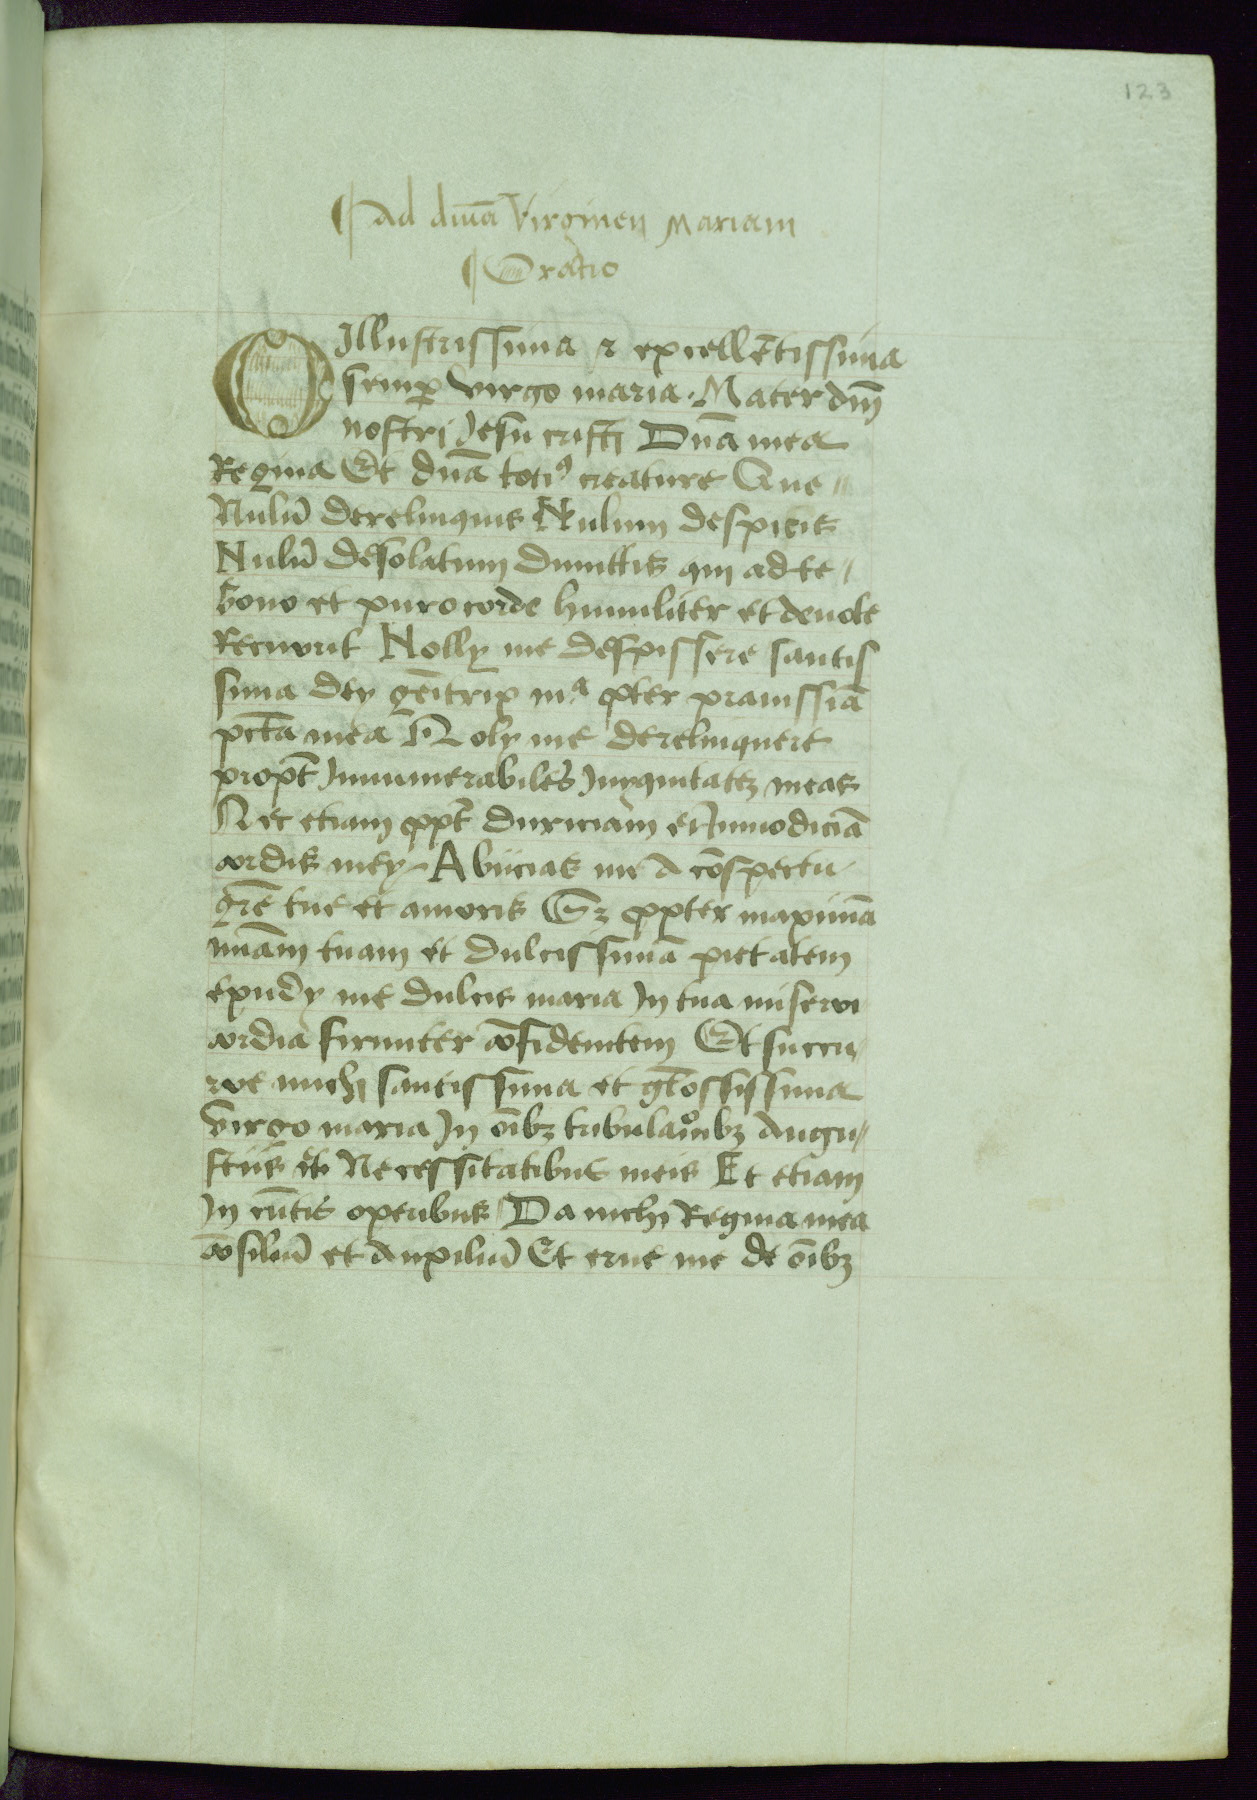 123
¶ Ad diuā Virginen Mariam
¶ Oratio
O Illustrissima ⁊ excellētissima
semꝑ virgo maria. Mater dn̄i
nostri Jesu cristi Dn̄a mea
Regina Et dn̄a totiꝰ creature Que
Nulū derelinquis Nulum despicis
Nulū desolatum dimittis qui ad te
bono et puro corde humiliter et deuote
Recurrit Nolly me despissere santis
sima dey gēitrix mª ꝓter prauissiā
pctā mea Noly me derelinquere
propt̄ Innumerabiles Inyquitatꝫ meas
Nec etiam ꝓpt̄ duriciam et Inmodiciā
cordis mey Abiicias me A cōspectu
grē tue et amoris Sꝫ ꝓpter maximā
miām tuam et dulcissimā pietatem
exudy me dulcis maria In tua miseri
cordia firmiter cōfidentem Et succu
rre michi santissima et gl̄ossissima
virgo maria In oībꝫ tribulaōnibꝫ Angu
stiis et Necessitatibus meis Et etiam
In cūtis operibus Da michi Regina mea
cōsiliū et Auxiliū Et erue me de oībꝫ